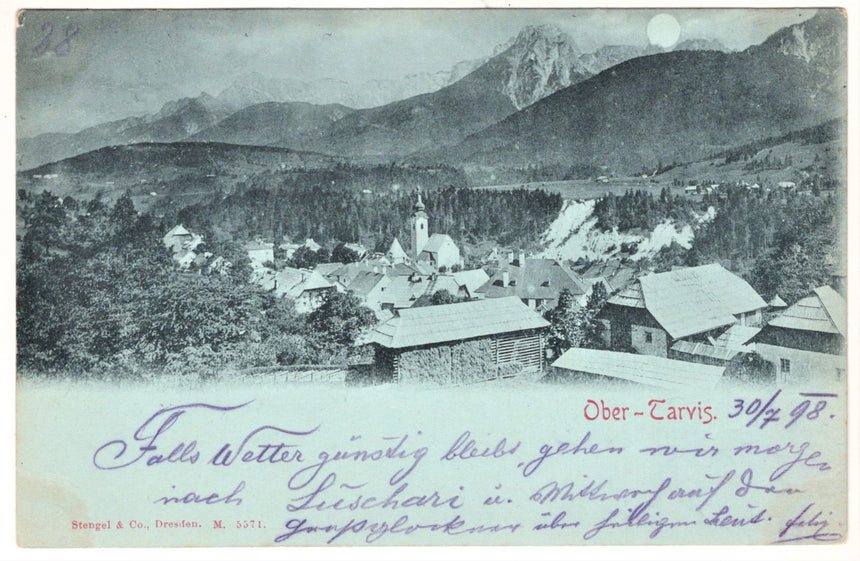 28
Ober-Tarvis. 30/7 98.
Falls Wetter günstig bleibt, gehen wir morgen
nach Luschari u. Mittwoch auf den
Stengel & Co., Dresden. M. 5571.
Grossglockner über heiligen